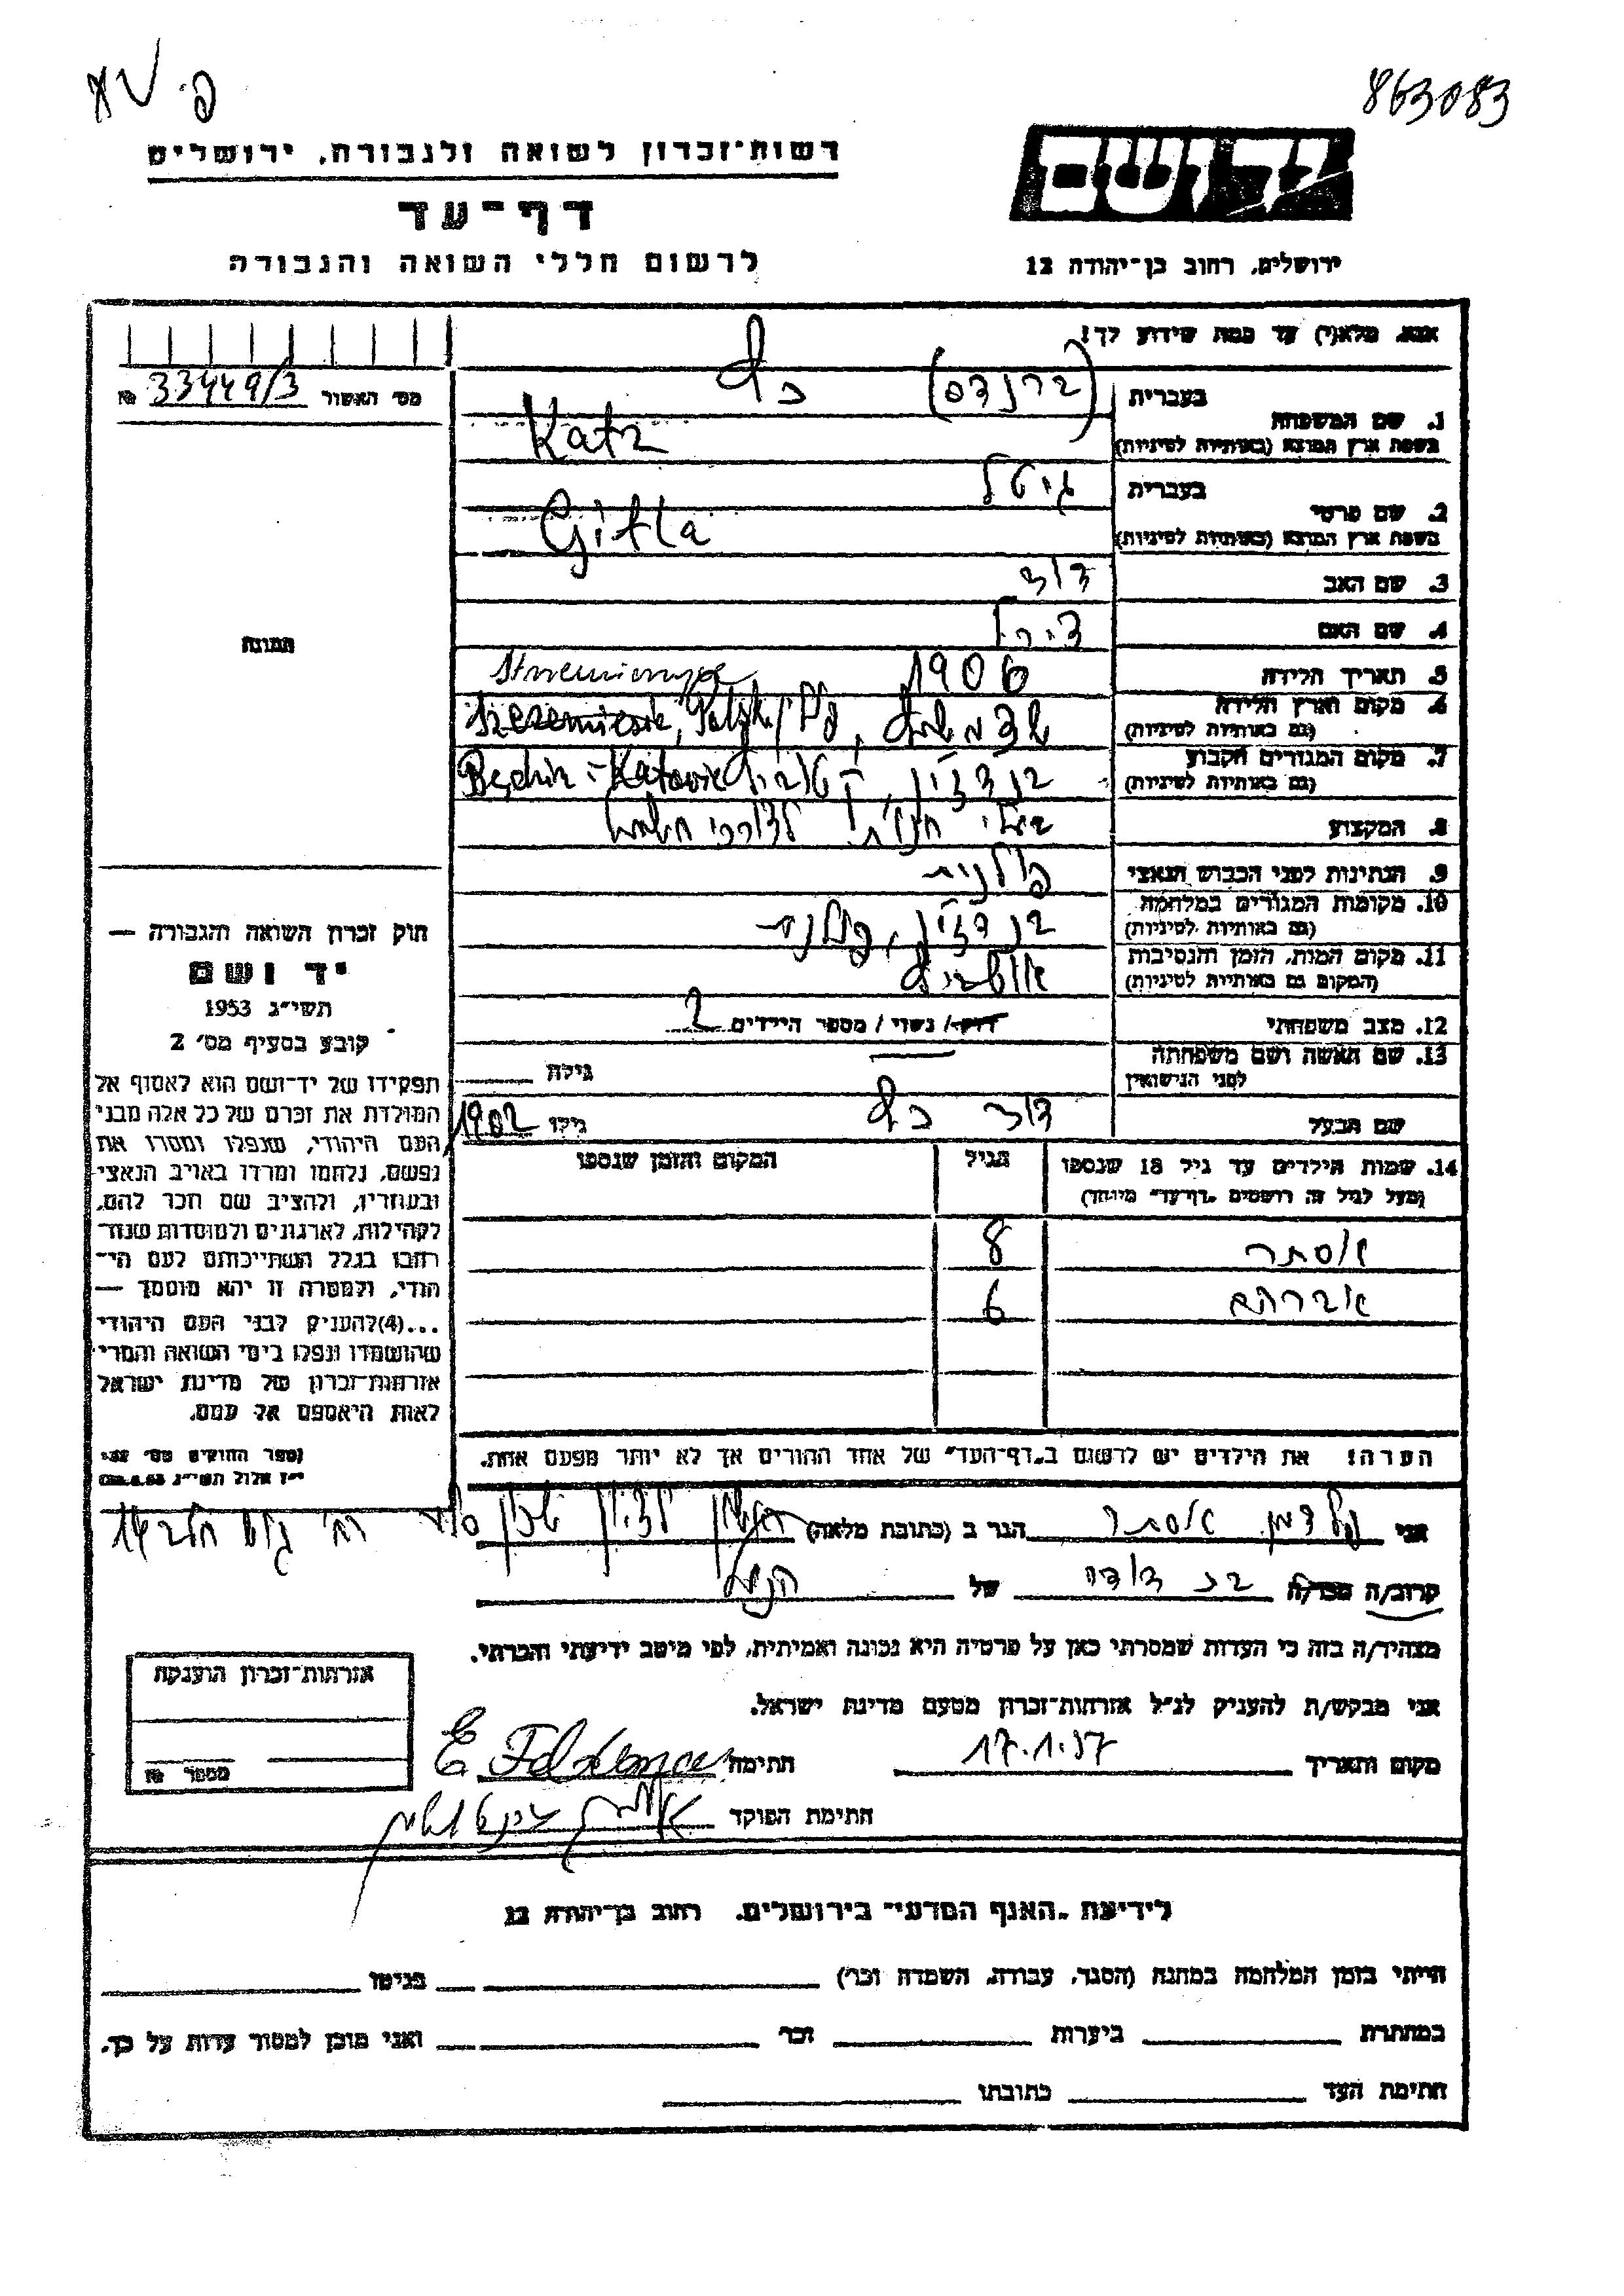 פ. שא
863083
רשות-זכרון לשואה ולגבורה, ירושלים
דף-עד
לרשום חללי השואה והגבורה
יד ושם
ירושלים, רחוב בן-יהודה 12
אנא, מלא(י) עד כמה שידוע לך!
מס׳ האשור 33449/3 №
תמונה
1. שם המשפחה
בעברית (ברנדס) כץ
בשפת ארץ המוצא (באותיות לטיניות) Katz
2. שם פרטי
בעברית גיטל
בשפת ארץ המוצא (באותיות לטיניות) Gitla
3. שם האב דוד
4. שם האם
5. תאריך הלידה 1906
6. מקום וארץ הלידה
(גם באותיות לטיניות)
7. מקום המגורים הקבוע בנדzין, קטוביץ Będzin - Katowice
(גם באותיות לטיניות)
8. המקצוע בעלי חנות
9. הנתינות לפני הכבוש הנאצי פולנית
10. מקומות המגורים במלחמה
(גם באותיות לטיניות)
11. מקום המות, הזמן והנסיבות אושביץ
(המקום גם באותיות לטיניות)
12. מצב משפחתי רוק / נשוי / מספר הילדים 2
13. שם האשה ושם משפחתה גילה
לפני הנישואין
שם הבעל דוד כץ גילו 1902
14. שמות הילדים עד גיל 18 שנספו הגיל המקום והזמן שנספו
(מעל לגיל זה רושמים „דף-עד" מיוחד)
אסתר 8
אברהם 6
הערה: את הילדים יש לרשום ב„דף-העד" של אחד ההורים אך לא יותר מפעם אחת.
חוק זכרון השואה והגבורה —
יד ושם
תשי״ג 1953
קובע בסעיף מס׳ 2
תפקידו של יד-ושם הוא לאסוף אל
המולדת את זכרם של כל אלה מבני
העם היהודי, שנפלו ומסרו את
נפשם, נלחמו ומרדו באויב הנאצי
ובעוזריו, ולהציב שם וזכר להם,
לקהילות, לארגונים ולמוסדות שנח-
רבו בגלל השתייכותם לעם הי-
הודי, ולמטרה זו יהא מוסמך —
...(4) להעניק לבני העם היהודי
שהושמדו ונפלו בימי השואה והמרי
אזרחות-זכרון של מדינת ישראל
לאות היאספם אל עמם.
אני פלדמן אסתר הגר ב (כתובת מלאה) ראשון לציון שכון רח׳ גוש חלב 14
קרוב/ה מכר/ה בת דודו של הנ״ל
מצהיר/ה בזה כי העדות שמסרתי כאן על פרטיה היא נכונה ואמיתית, לפי מיטב ידיעתי והכרתי.
אני מבקש/ת להעניק לנ״ל אזרחות-זכרון מטעם מדינת ישראל.
מקום ותאריך 17.1.57 חתימה E Feldman
חתימת הפוקד
אזרחות-זכרון הוענקה
מספר №
לידיעת „האגף המדעי" בירושלים, רחוב בן-יהודה 12
הייתי בזמן המלחמה במחנה (הסגר, עבודה, השמדה וכו׳) בגיטו
במחתרת ביערות וכו׳ ואני מוכן למסור עדות על כך.
חתימת העד כתובתו